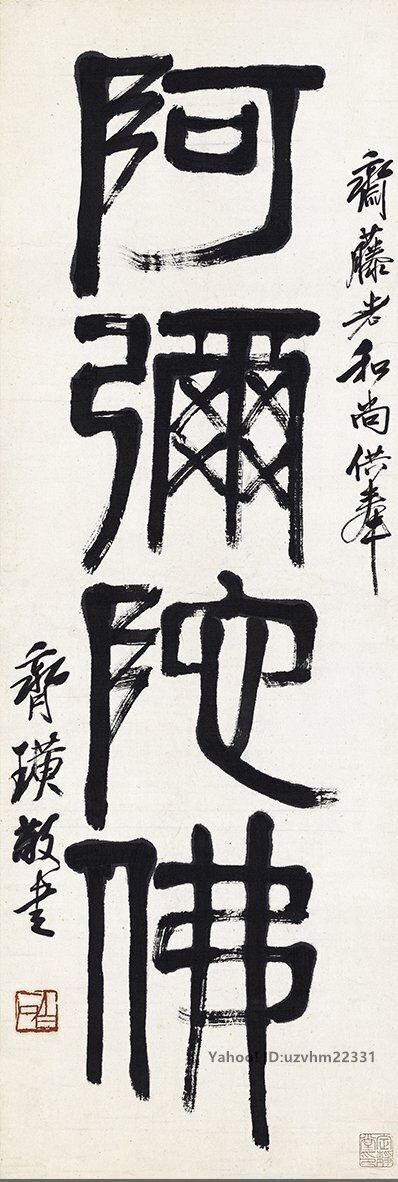 齋藤老和尚供奉
阿彌陀佛
齊璜敬書
白石
Yahoo! ID:uzvhm22331